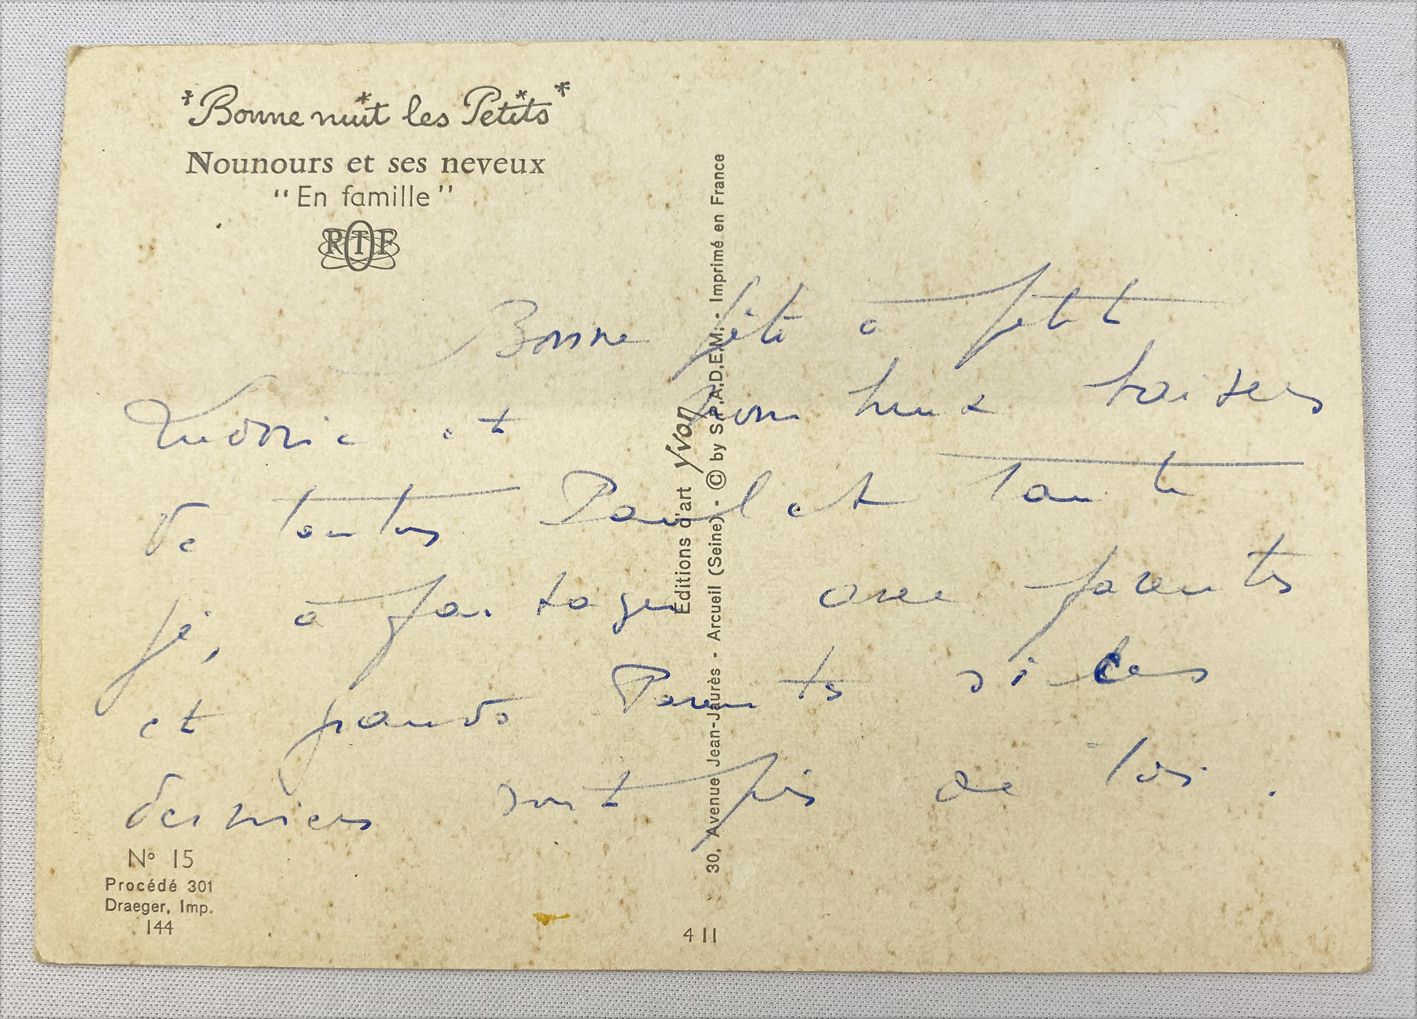 Bonne nuit les Petits
Nounours et ses neveux
"En famille"
RTF
Bonne fête à petit
et bons baisers
de toutes Paul et Tante
à partager avec parents
et grands Parents si ces
derniers sont près de toi.
N° 15
Procédé 301
Draeger, Imp.
144
Éditions d'art Yvon
30, Avenue Jean-Jaurès - Arcueil (Seine) - © by S.P.A.D.E.M. - Imprimé en France
411